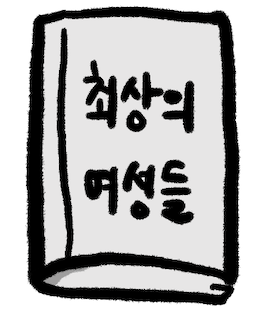 최상의
여성들